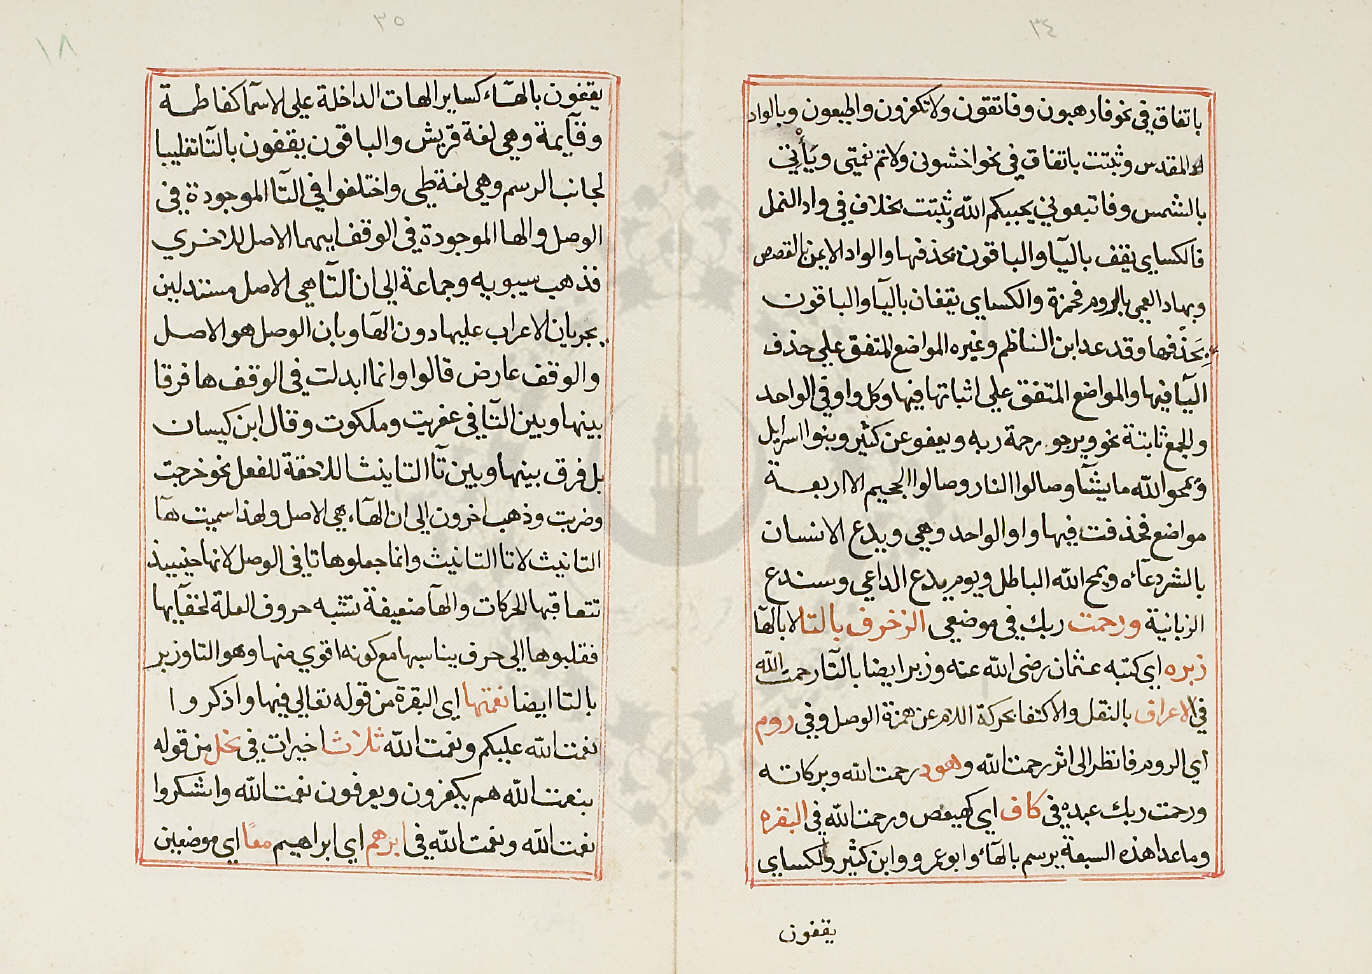 ٣٤
باتفاق في نحو فارهبون وفاتقون ولا تكفرون واطيعون وبالواد
المقدس وثبتت باتفاق في نحو اخشوني ولاتم نعمتي ويأتي
بالشمس وفاتبعوني يحببكم الله وثبتت بخلاف في واد النمل
فالكساي يقف باليآ والباقون بحذفها والواد الايمن بالقصص
وبهاد العمي بالروم فحمزة والكساي يقفان باليآ والباقون
بحذفها وقد عد ابن الناظم وغيره المواضع المتفق علي حذف
اليآ فيها والمواضع المتفق علي اثباتها فيها وكل واو في الواحد
والجمع ثابتة نحو ويرجو رحمة ربه ويعفو عن كثير وبنوا اسرايل
ويمحو الله ما يشآ وصالوا النار وصالوا الجحيم الا اربعة
مواضع فحذفت فيها واو الواحد وهي ويدع الانسان
بالشر دعآه ويمح الله الباطل ويوم يدع الداعي وسندع
الزبانية ورحمت ربك في موضعي الزخرف بالتا لا بالهآ
زبره اي كتبه عثمان رضي الله عنه وزبر ايضا بالتآ رحمت الله
في الاعراف بالنقل والاكتفا بحركة اللام عن همزة الوصل وفي روم
اي الروم فانظر الى اثر رحمت الله وهود رحمت الله وبركاته
ورحمت ربك عبده في كاف اي كهيعص ورحمت الله في البقره
وما عدا هذه السبعة يرسم بالهآء وابو عمرو وابن كثير والكساي
يقفون
٣٥
١٨
يقفون بالهآء كساير الهات الداخلة علي الاسمآ كفاطمة
وقآيمة وهي لغة قريش والباقون يقفون بالتآ تغليبا
لجانب الرسم وهي لغة طي واختلفوا في التآ الموجودة في
الوصل والها الموجودة في الوقف ايهما الاصل للاخري
فذهب سيبويه وجماعة الي ان التآ هي الاصل مستدلين
بجريان الاعراب عليها دون الهآ وبان الوصل هو الاصل
والوقف عارض قالوا وانما ابدلت في الوقف ها فرقا
بينها وبين التآ في عفريت وملكوت وقال ابن كيسان
بل فرق بينها وبين تآ التانيث اللاحقة للفعل نحو خرجت
وضربت وذهب اخرون الي ان الهآء هي الاصل ولهذا سميت هآ
التانيث لا تا التانيث وانما جعلوها تا في الوصل لانها حينيذ
تتعاقبها الحركات والهآ ضعيفة تشبه حروف العلة لخفآيها
فقلبوها الي حرف يناسبها مع كونه اقوي منها وهو التا وزبر
بالتا ايضا نعمتها اي البقرة من قوله تعالي فيها واذكروا
نعمت الله عليكم ونعمت الله ثلاث اخيرات في نحل من قوله
بنعمت الله هم يكفرون ويعرفون نعمت الله واشكروا
نعمت الله ونعمت الله في ابرهم اي ابراهيم معًا اي موضعين